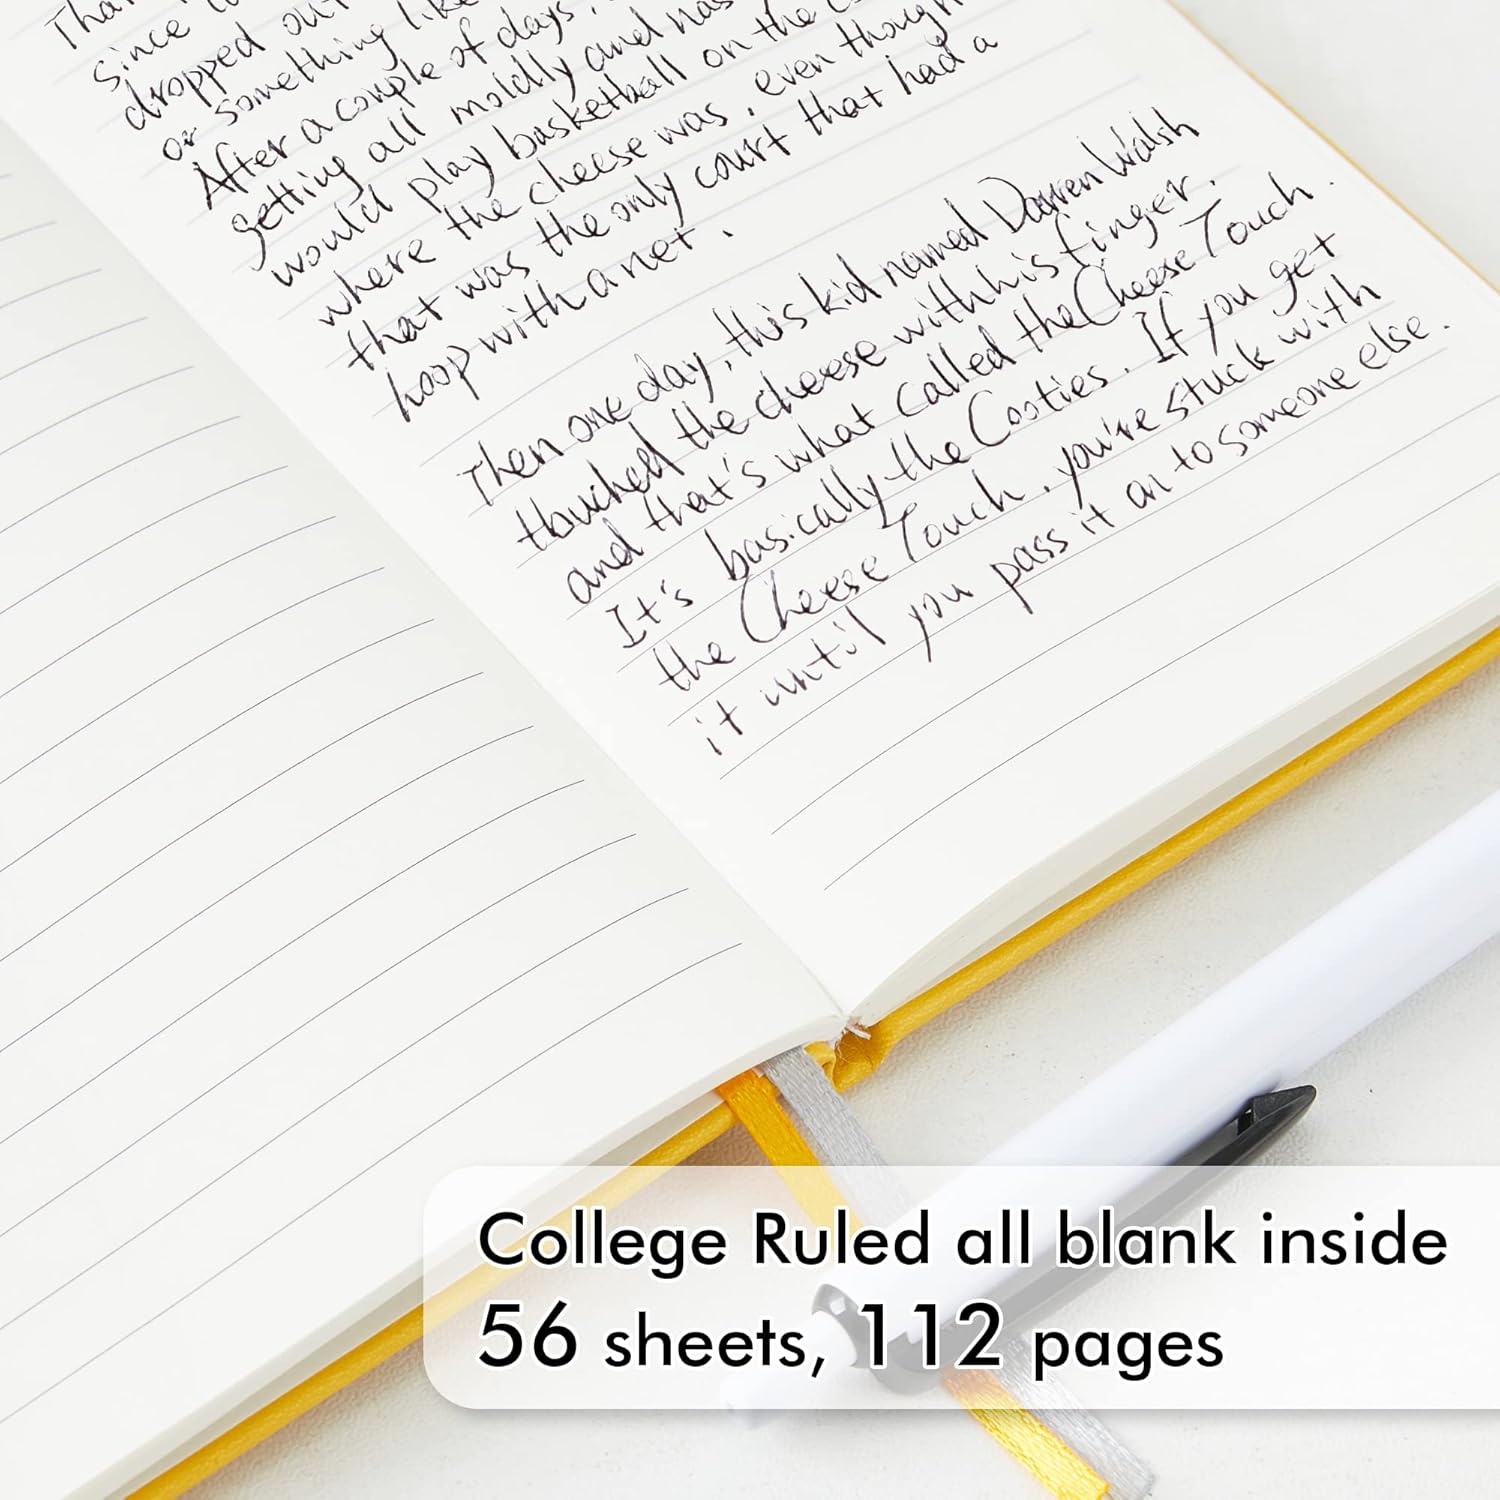 Than
since
dropped out
or something like
After a couple of days,
getting all moldly and nas
would play basketball on the c
where the cheese was , even though
that was the only court that had a
hoop with a net .
Then one day, this kid named Darren Walsh
touched the cheese with his finger .
and that's what called the Cheese Touch .
It's basically the Cooties . If you get
the Cheese Touch , you're stuck with
it until you pass it on to someone else .
College Ruled all blank inside
56 sheets, 112 pages